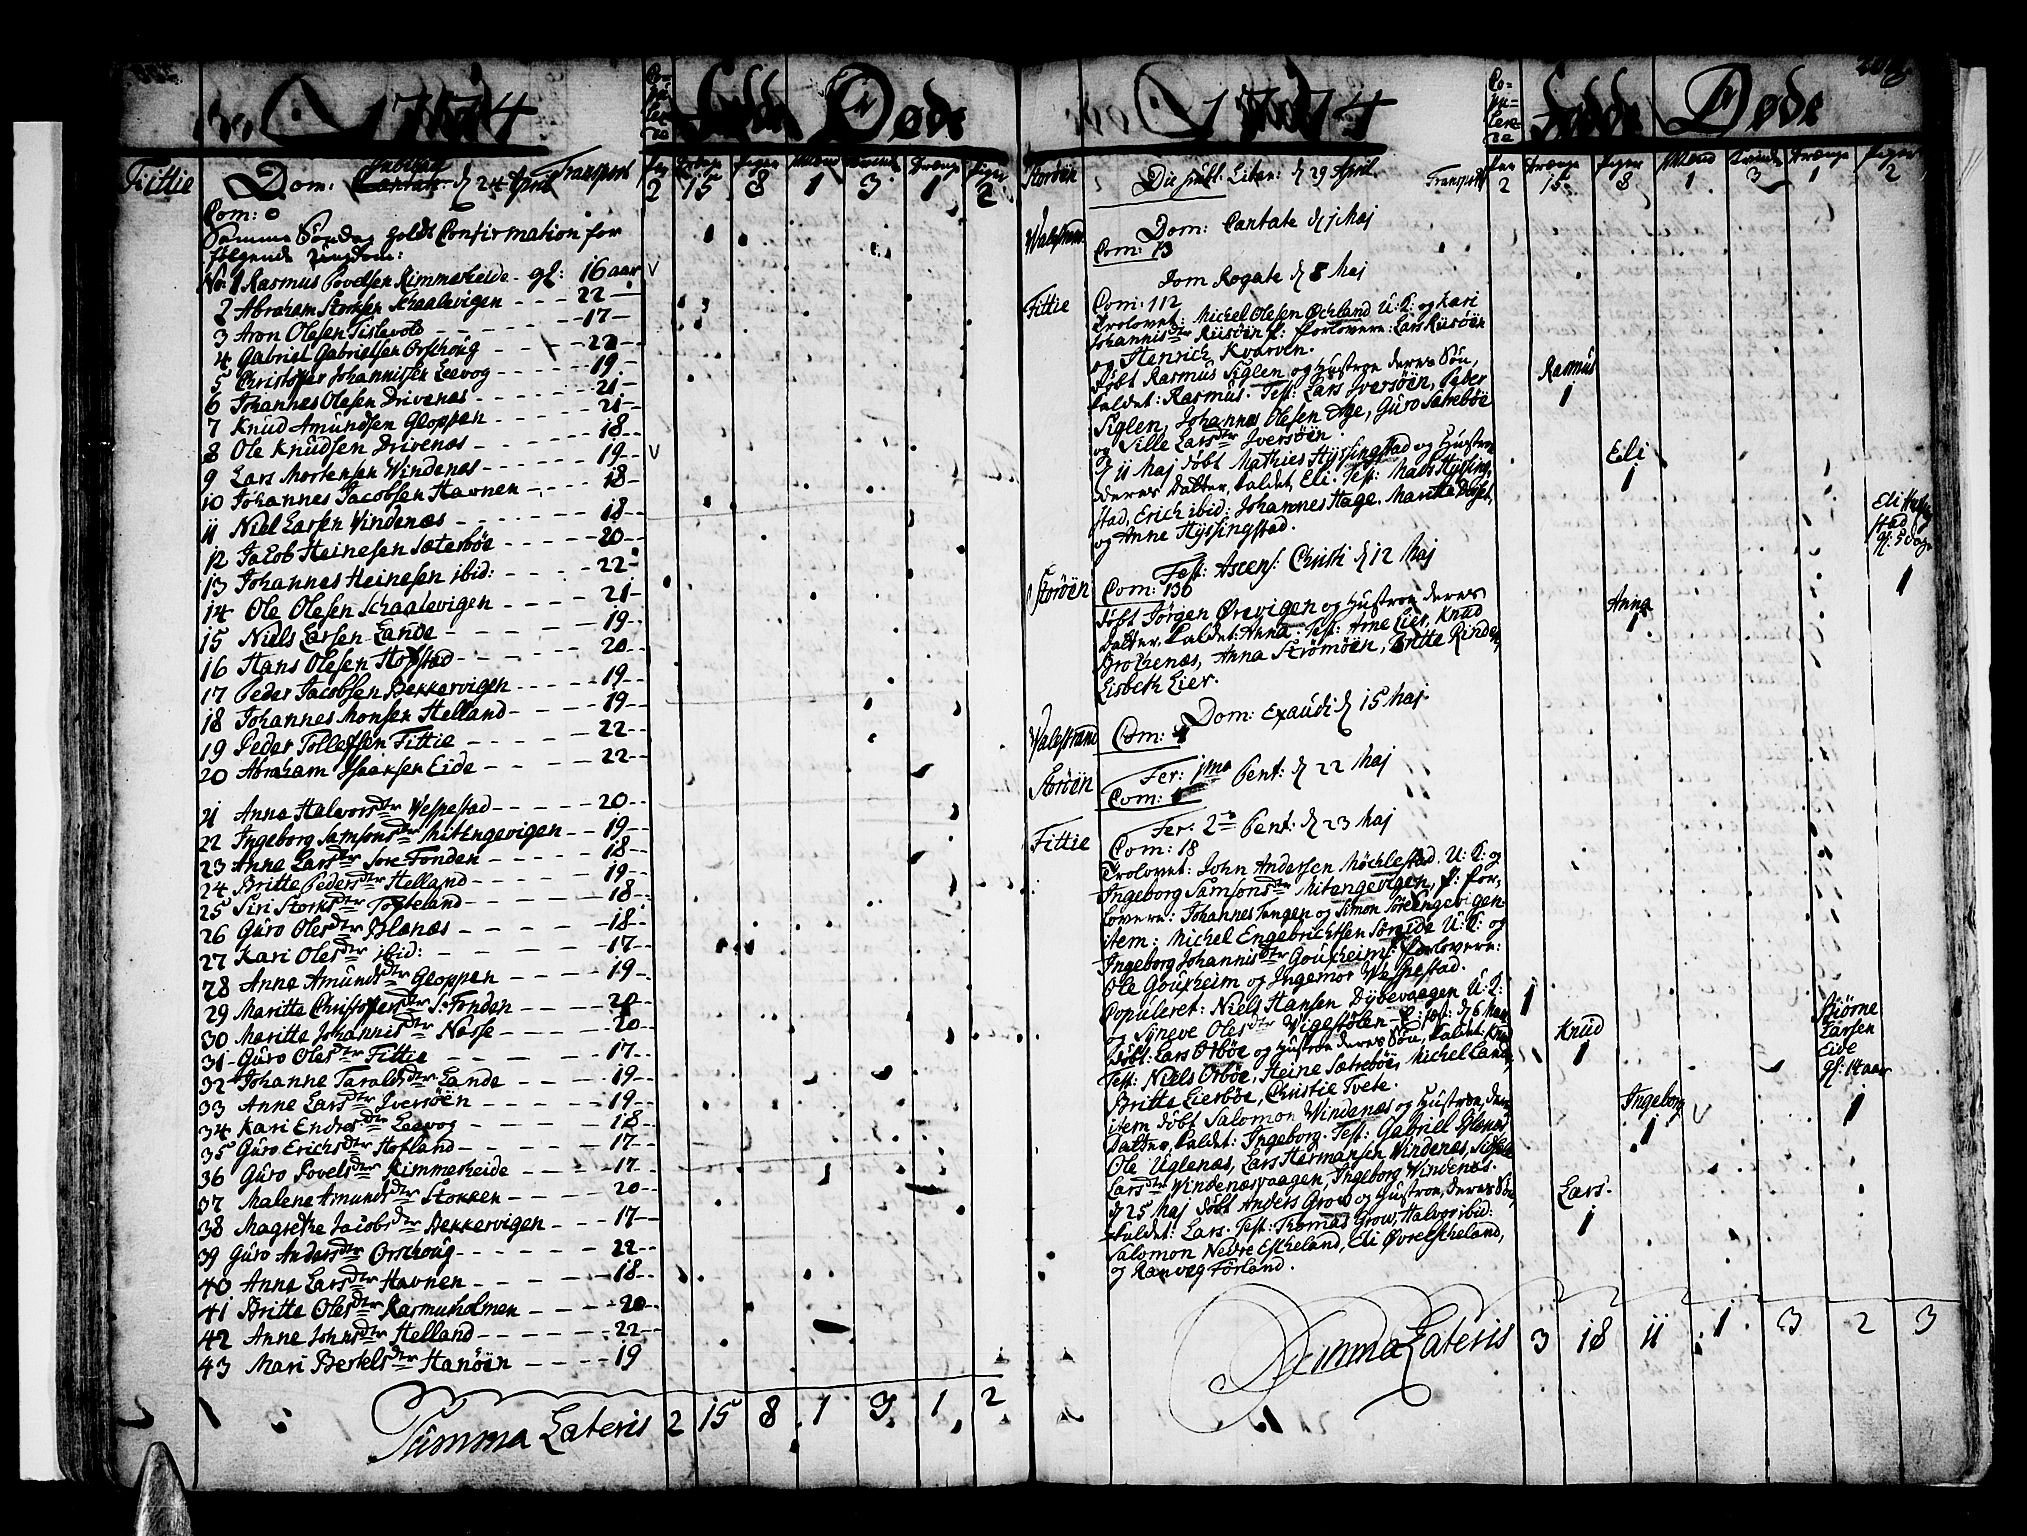 1774
Co-
pu-
le-
re-
de
Fødde
Døde
Fittie
Dom: Jubilate d 24 April
Transport
Par
Drenge
Piger
Mænd
Drenge
Piger
2 15 8 1 3 1 2
Com: 0
Samme Søndag holdt Confirmation for
følgende Ungdom:
No 1 Rasmus Povelsen Rimmereide gl: 16 aar
2 Abraham Storksen Schaalevigen - - - 22 -
3 Aron Olesen Tislevold - - - 17 -
4 Gabriel Gabrielsen Orschoug - - - 22 -
5 Christopher Johannissen Leevog - - - 19 -
6 Johannes Olesen Drivenæs - - - 21 -
7 Knud Amundsen Gloppen - - - 21 -
8 Ole Knudsen Drivenæs - - - 18 -
9 Lars Mortensen Windenæs - - - 19 -
10 Johannes Jacobsen Havnen - - - 18 -
11 Niel Larsen Vindenæs - - - 18 -
12 Jacob Heinesen Sæterbøe - - - 20 -
13 Johannes Heinesen ibid: - - - 22 -
14 Ole Olesen Schaalevigen - - - 21 -
15 Niels Larsen Lande - - - 19 -
16 Hans Olesen Hopstad - - - 20 -
17 Peder Jacobsen Bekkervigen - - - 19 -
18 Johannes Monsen Helland - - - 19 -
19 Peder Tollefsen Fittie - - - 22 -
20 Abraham Isaaksen Eide - - - 22 -
21 Anna Halvorsdtr Vespestad - - - 20 -
22 Ingeborg Samsonsdtr Mitengevigen - - 19 -
23 Anne Larsdtr Sore Fonden - - - 18 -
24 Britte Pedersdtr Helland - - - 19 -
25 Siri Storksdtr Totteland - - - 18 -
26 Guro Olesdtr Blænæs - - - 18 -
27 Kari Olesdtr ibid: - - - 17 -
28 Anne Amundsdtr Gloppen - - - 19 -
29 Maritte Christophersdtr S: Fonden - - - 20 -
30 Maritte Johannisdtr Nesse - - - 20 -
31 Guro Olesdtr Fittie - - - 17 -
32 Johanne Taraldsdtr Lande - - - 19 -
33 Anne Larsdtr Iversøen - - - 19 -
34 Kari Endresdtr Leevog - - - 18 -
35 Guro Erichsdtr Hofland - - - 17 -
36 Guro Povelsdtr Rimmereide - - - 17 -
37 Malene Amundsdtr Stokken - - - 20 -
38 Magrethe Jacobsdtr Bekkervigen - - - 17 -
39 Guro Andersdtr Orschoug - - - 22 -
40 Anna Larsdtr Havnen - - - 18 -
41 Britte Olesdtr Rasmusholmen - - - 20 -
42 Anne Johnsdtr Helland - - - 22 -
43 Mari Bertelsdtr Hanøen - - - 19
Summa Lateris 2 15 8 1 3 1 2
1774
Co-
pu-
lere-
de
Fødde
Døde
Par
Drenge
Piger
Mænd
Qvinde
Drenge
Piger
Stordøen
Die publ. Litan: d 29 April
Transport 2 15 8 1 3 1 2
Valestrand
Dom: Cantate d 1 Maj
Com: 13
Dom Rogate d 8 Maj
Fittie
Com: 112
Trolovet: Michel Olesen Øchland U: K: og Kari
Johannisdtr Riisøen P: Forlovere: Lars Riisøen
og Henrich Kvarven.
Døbt Rasmus Siglen og Hustroe deres Søn,
kaldet: Rasmus. Test: Lars Iversøen, Peder
Siglen, Johannes Olesen Age, Guro Sætrebøe
og Sille Larsdtr Iversøen.
Rasmus
1
d 11 Maj døbt Mathies Hyssingstad og Hustroe
deres Datter, kaldet Eli. Test: Mads Hyssing
stad, Erich ibid: Johannes Hage. Maritte
og Anne Hyssingstad.
Eli
1
Eli Hyssing
stad
gl: 5 Dage
1
Fest: Ascens: Christi d 12 Maj
Storøen
Com: 136
Døbt Jørgen Ørevigen og Hustroe deres
Datter, kaldet: Anna: Test: Arne Lier, Knud
Grotkenæs, Anna Strømøen, Britte Rinden,
Lisbeth Lier.
Anna
1
Dom: Exaudi d 15 Maj.
Valestrand
Com: 4
Storøen
Fer: 1ma Pent: d 22 Maj
Com:
Fittie
Fer: 2da Pent: d 23 Maj
Com: 18
Trolovet: John Andersen Mochlestad. U: K: og
Ingeborg Samsonsdtr Mitengevigen, P: For,
lovere: Johannes Tengen og Simon Sørengevigen
item: Michel Engebrichtsen Søreide U: K: og
Ingeborg Johannisdtr Gouxheim P: Forlovere:
Ole Gouxheim og Ingemor Vespestad.
Populeret: Niels Hansen Dybevaagen U: K:
og Syneve Olesdtr Vigestølen P: d 6 Mart
1
Døbt: Lars Orbøe og Hustroe deres Søn, kaldet Knud
Test: Niels Orbøe, Heine Sætrebøe, Michel Lande
Britte Lierbøe, Christie Tvete.
Knud
1
Biørne
Larsen
Eide
gl: 14 aar
1
item døbt Salomon Windenæs og Hustroe, deres
Datter, kaldet: Ingeborg. Test: Gabriel Blenæs
Ole Uglenæs, Lars Hermansen Vindenæs,
Larsdtr Windenæsvaagen, Ingeborg Windenæs.
Ingeborg
1
d 25 Maj døbt Anders Grow og Hustroe, deres Søn,
kaldet: Lars. Test: Thomas Grow, Halvor ibid:
Salomon Nedre Escheland, Eli Øvre Escheland,
og Ranveg Førland.
Lars.
1
Summa Lateris 3 18 11 1 3 2 3